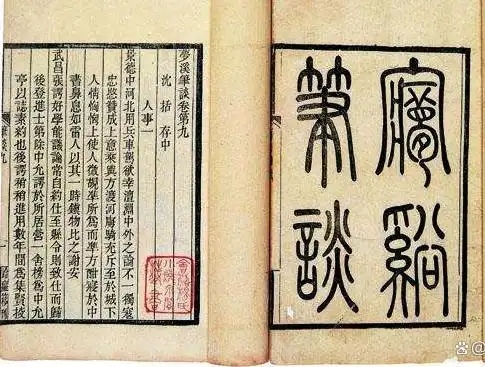 夢谿
筆談
夢溪筆談卷第九
沈括存中
人事一
景德中河北用兵車駕欲幸澶淵中外之論不一獨寇
忠愍贊成上意乘輿方渡河虜騎充斥至於城下
人情恟恟上使人微覘準所為而準方酣寢於中
書鼻息如雷人以其一時鎮物比之謝安
武昌張諤好學能議論常自約仕至縣令則致仕而歸
後登進士第除中允諤於所居營一舍榜為中允
亭以誌素約也後諤稍稍進用數年間為集賢校
@